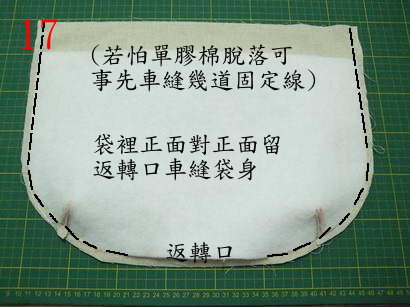 17
(若怕單膠棉脫落可
事先車縫幾道固定線)
袋裡正面對正面留
返轉口車縫袋身
返轉口